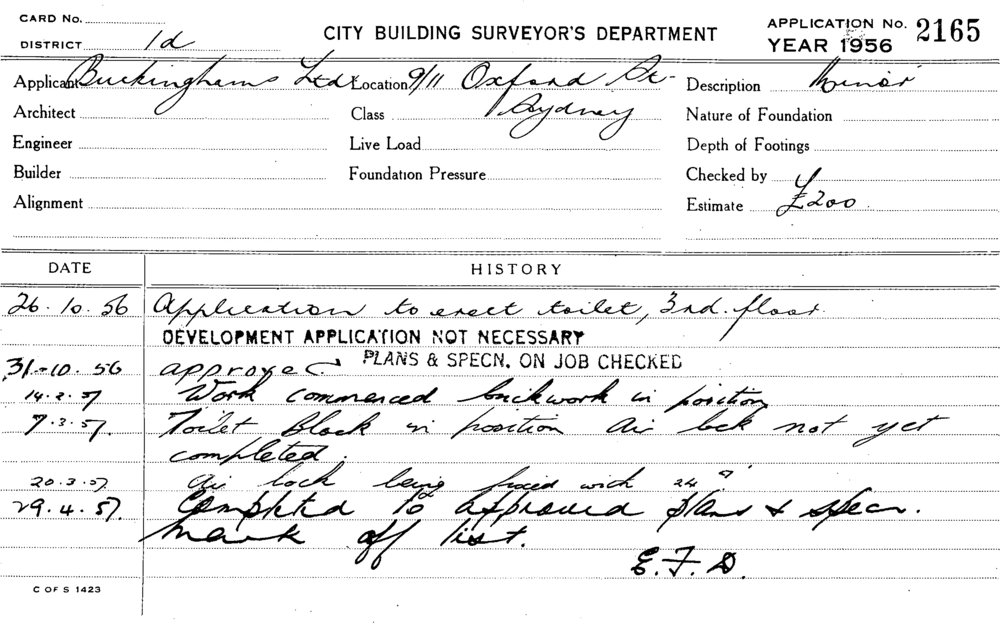 CARD No.
DISTRICT 1d
CITY BUILDING SURVEYOR'S DEPARTMENT
APPLICATION No. 2165
YEAR 1956
Applicant Buckinghams Ltd.
Location 9/11 Oxford St.
Description Minor
Architect
Class Sydney
Nature of Foundation
Engineer
Live Load
Depth of Footings
Builder
Foundation Pressure
Checked by
Alignment
Estimate £200
DATE HISTORY
26.10.56 Application to erect toilet, 3rd. floor.
DEVELOPMENT APPLICATION NOT NECESSARY
PLANS & SPECN. ON JOB CHECKED
31-10.56 approved
14.2.57 Work commenced brickwork in position
7.3.57. Toilet Block in position Air lock not yet
completed.
20.3.57 Air lock being fixed with 24
29.4.57. Completed to approved plans & specn.
Mark off list.
E.F.D.
C OF S 1423